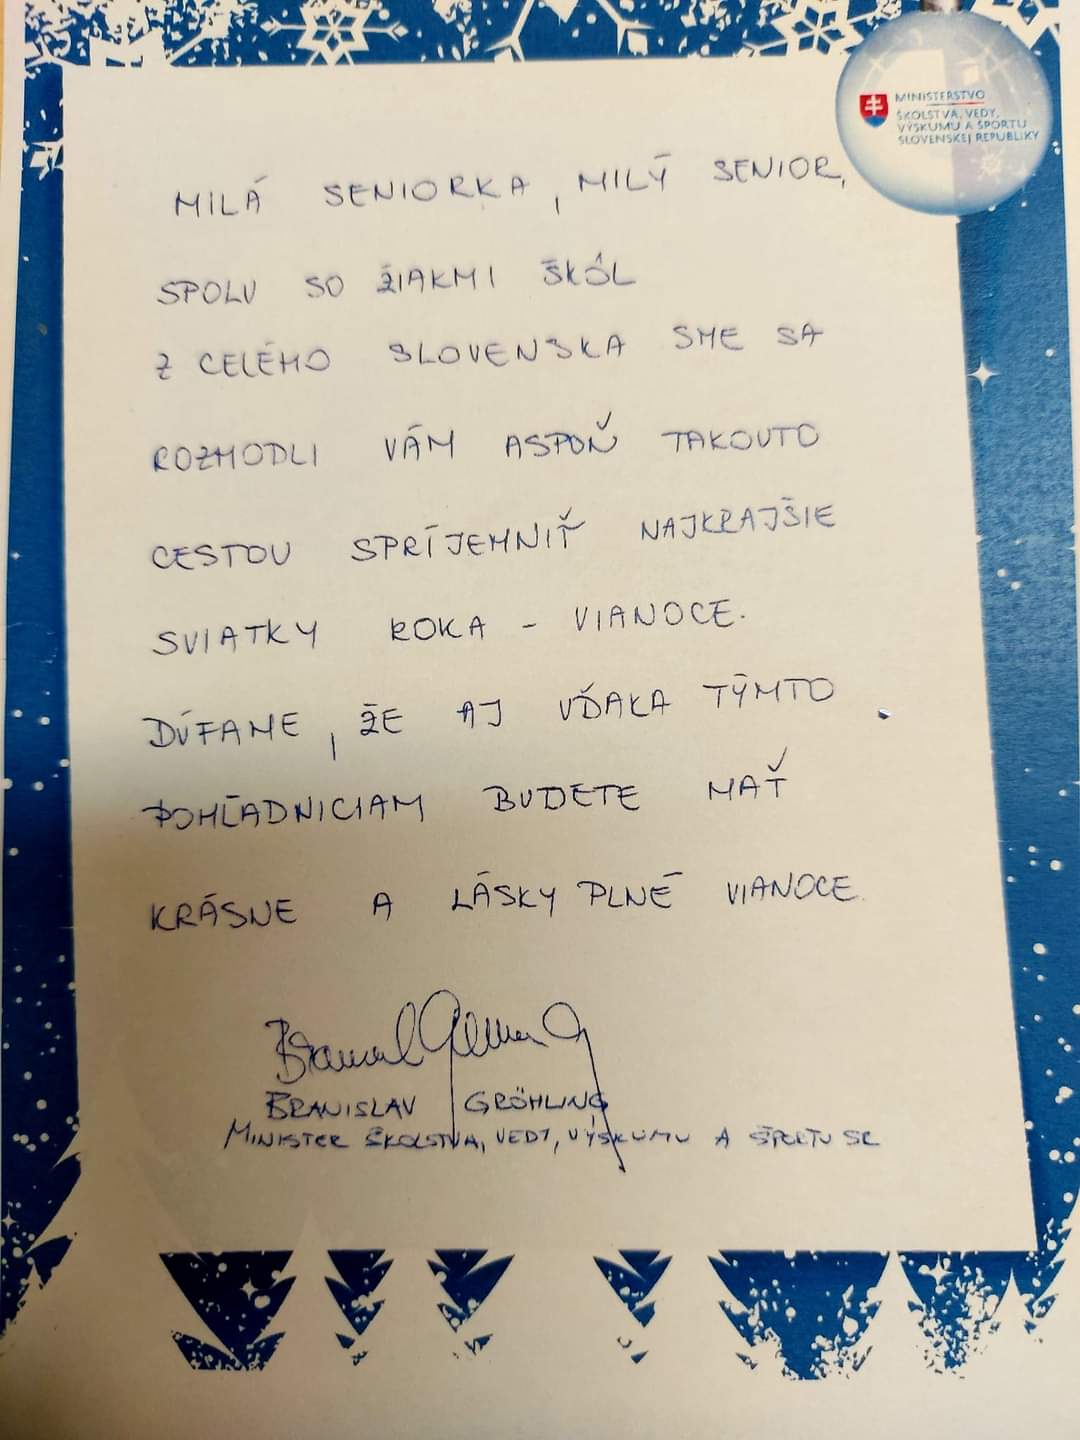 MINISTERSTVO
ŠKOLSTVA, VEDY,
VÝSKUMU A ŠPORTU
SLOVENSKEJ REPUBLIKY
MILÁ SENIORKA, MILÝ SENIOR,
SPOLU SO ŽIAKMI ŠKÔL
Z CELÉHO SLOVENSKA SME SA
ROZHODLI VÁM ASPOŇ TAKOUTO
CESTOU SPRÍJEMNIŤ NAJKRAJŠIE
SVIATKY ROKA - VIANOCE.
DÚFAME, ŽE AJ VĎAKA TÝMTO
POHĽADNICIAM BUDETE MAŤ
KRÁSNE A LÁSKY PLNÉ VIANOCE.
BRANISLAV GRÖHLING
MINISTER ŠKOLSTVA, VEDY, VÝSKUMU A ŠPORTU SR